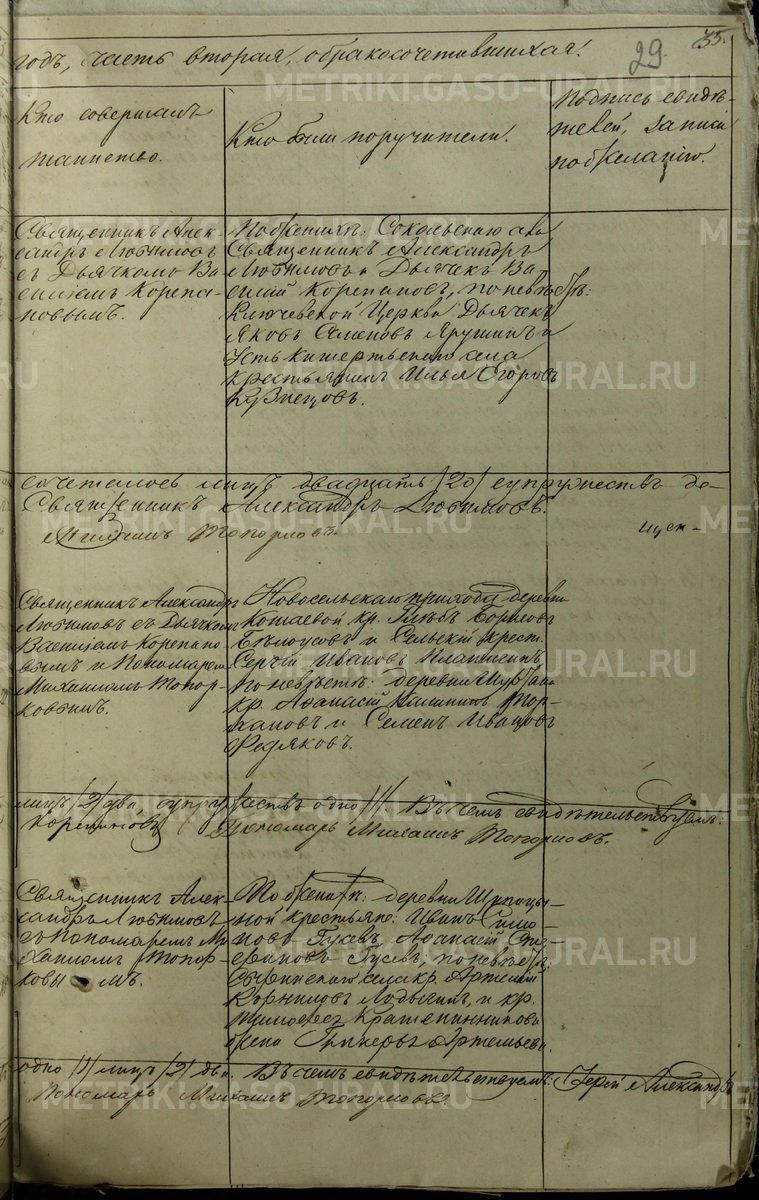 годъ, часть вторая, о бракосочетавшихся.
29.
35.
Кто совершалъ
таинство.
Кто были поручители.
Подпись свидѣ-
телей, записи
по желанію.
Священникъ Алек-
сандръ Любимовъ
съ Дьячкомъ Ва-
силіемъ Корепа-
новымъ.
По женихѣ: Сокольскаго села
Священникъ Александръ
Любимовъ и Дьячекъ Ва-
силій Корепановъ, по невѣстѣ:
Ключевской Церкви Дьячекъ
Яковъ Семеновъ Ярушинъ и
Усть Кишертскаго села
крестьянинъ Илья Егоровъ
Кузнецовъ.
сочеталось лицъ двадцать /20/ супружествъ де-
Священникъ Александръ Любимовъ.
Михаилъ Топорковъ.
Священникъ Александръ
Любимовъ съ Дьячкомъ
Василіемъ Корепано-
вымъ и Пономаремъ
Михаиломъ Топор-
ковымъ.
Новосельскаго прихода деревни
кр. Глѣбъ Борисовъ
Бѣлоусовъ и Сельскій крест.
Сергій Ивановъ
по невѣстѣ: деревни
кр. Афанасій
и Семенъ Ивановъ
Федяковъ.
лицъ /2/ два, супружествъ одно /1/. Въ чемъ свидѣтельствуемъ:
Корепановъ
Пономарь Михаилъ Топорковъ.
Священникъ Алек-
сандръ Любимовъ
съ Пономаремъ Ми-
хаиломъ Топор-
ковымъ.
По женихѣ: деревни
крестьяне: Иванъ Симо-
новъ Гусевъ, Афанасій Сте-
фановъ Гусевъ, по невѣстѣ:
села кр. Артемій
Корниловъ Лодыгинъ, и кр.
Тимофея Крашенинникова
жена Гликерья Артемьева.
одно /1/ лицъ /2/ два. Въ чемъ свидѣтельствуемъ: Іерей Александръ
Пономарь Михаилъ Топорковъ.
METRIKI.GASO-URAL.RU